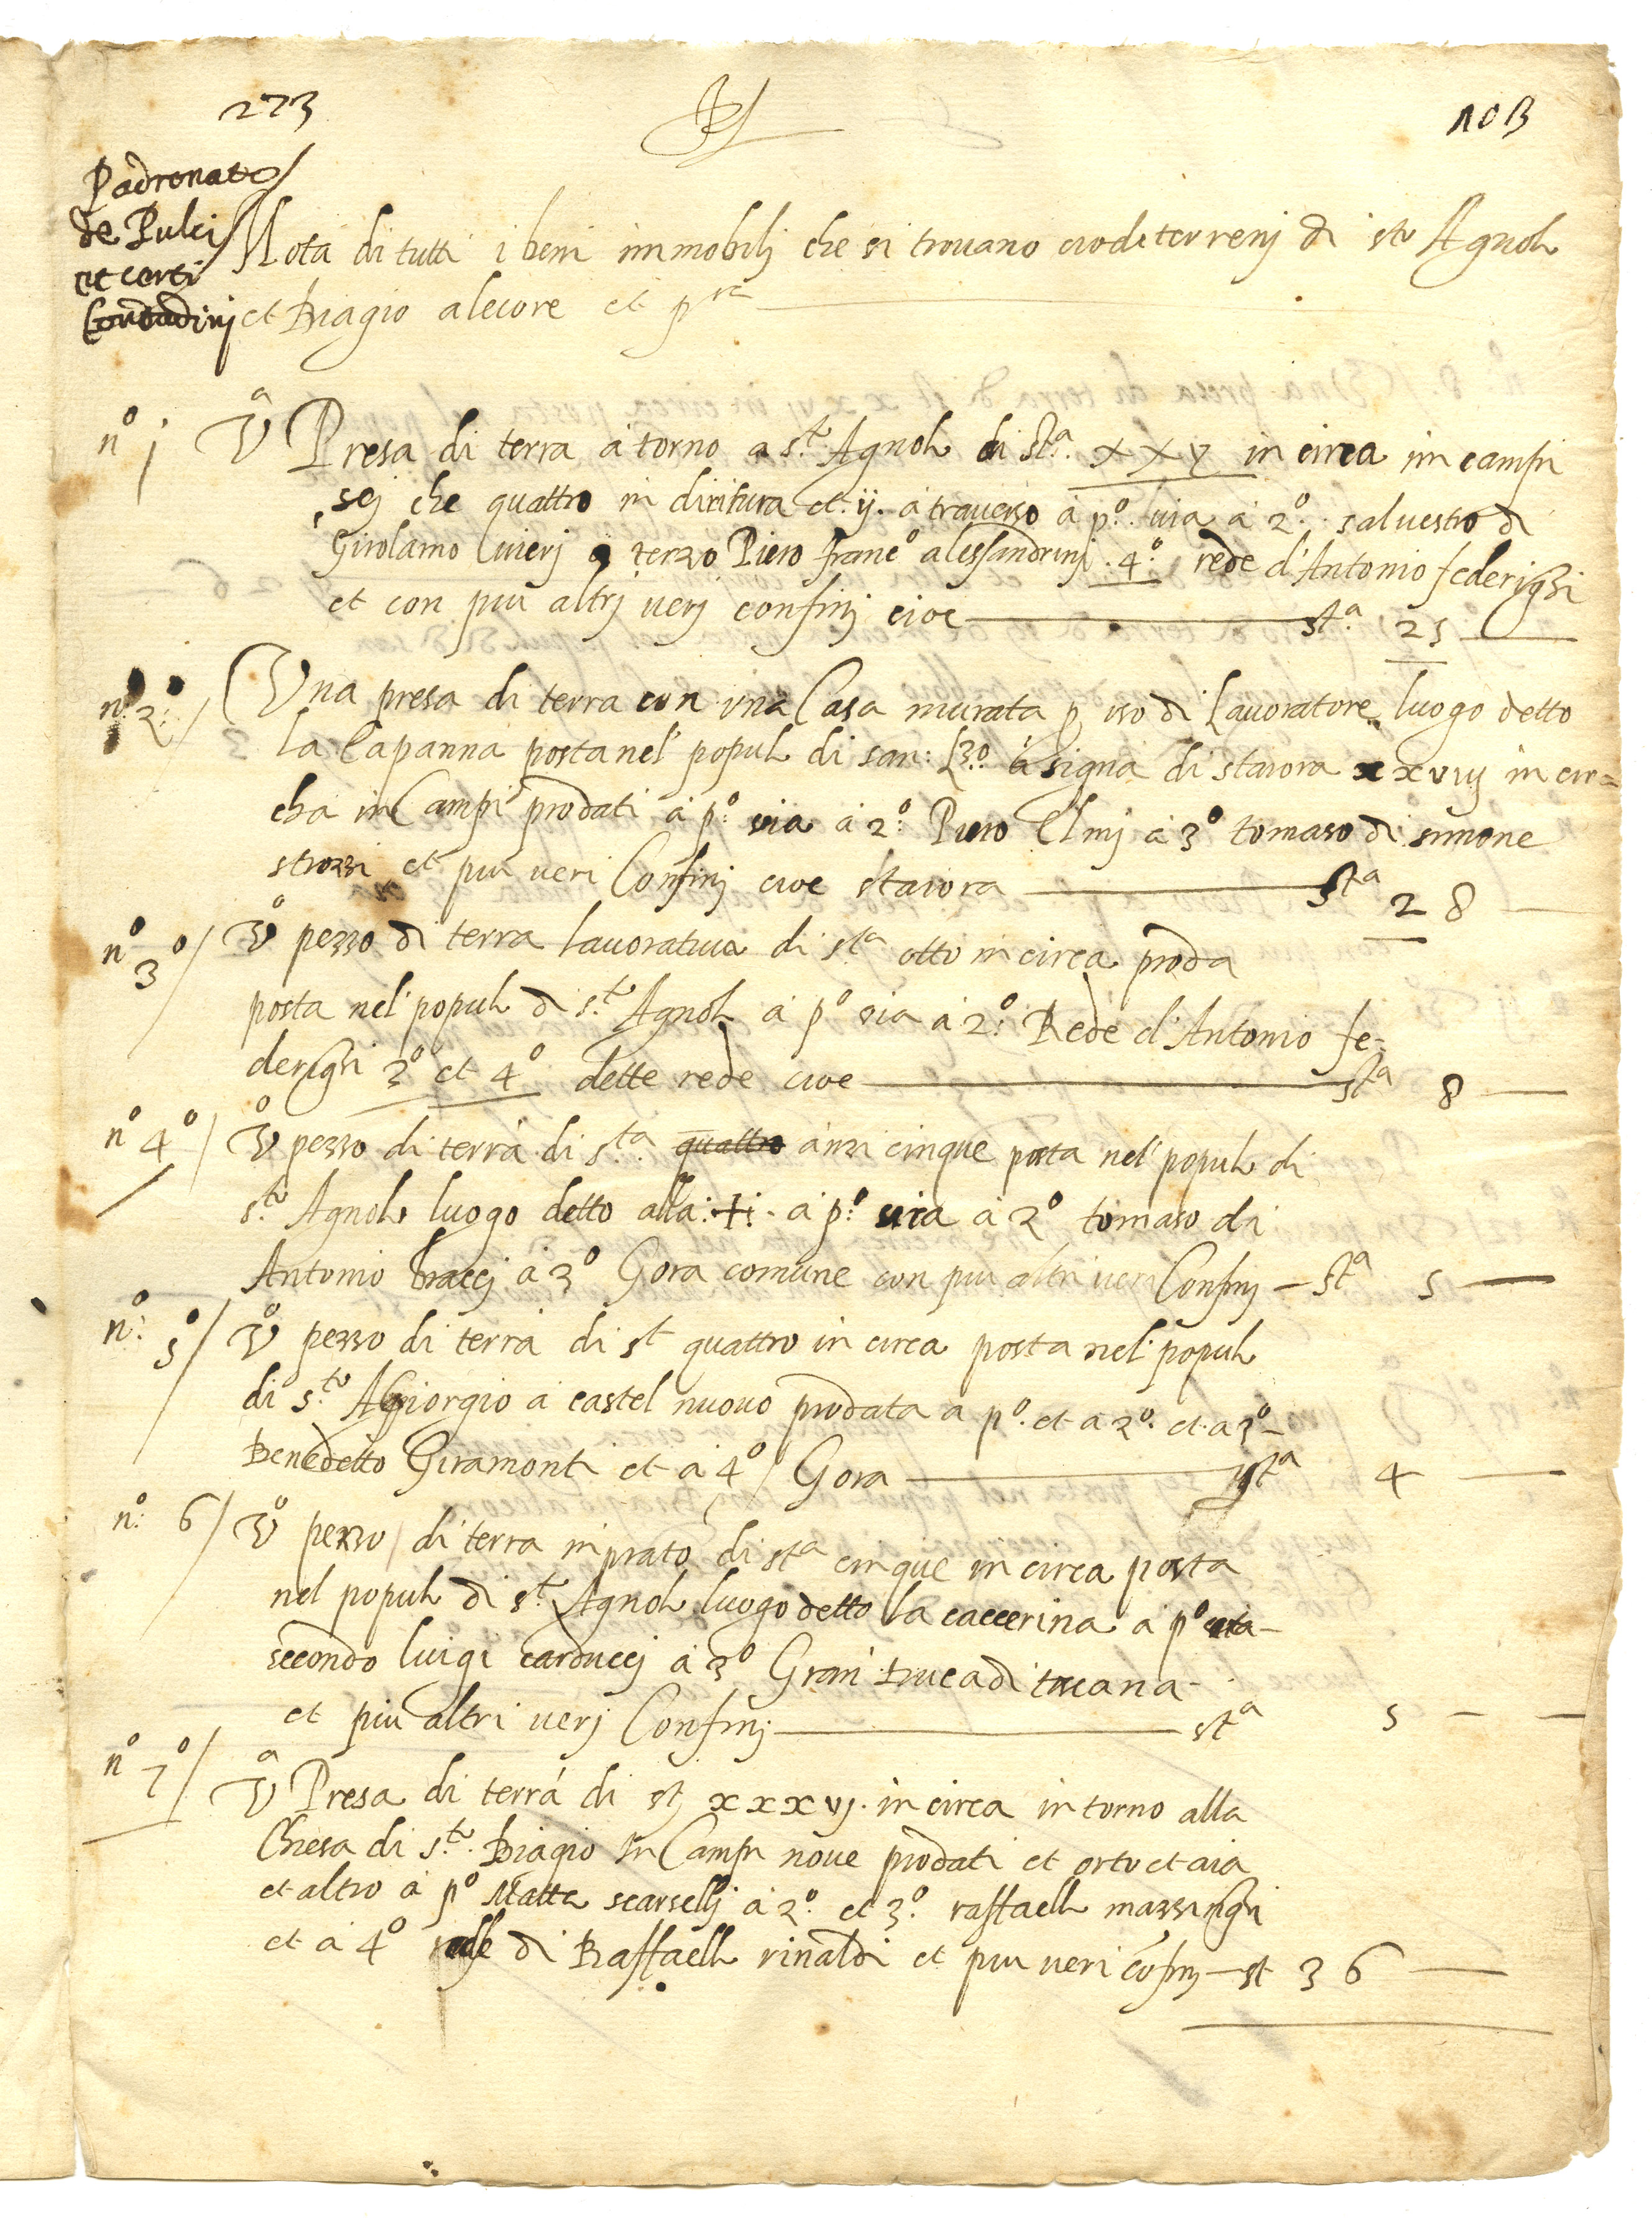 273
103
Padronato
de Pulci
et certi
Contadini
Nota di tutti i beni immobilj che si trovano cioe di terrenj di sto Agnolo
et Biagio alecore et pra
no 1 Va Presa di terra a torno a sto Agnolo di sta. xxv in circa in campi
sej che quattro in diritura et .ij. a traverso a po. via a 2o. salvestro di
Girolamo luierj a terzo Piero franco alessandrinj . 4o. rede d'Antonio federighi
et con piu altrj verj confinj cioe sta 25
no. 2o. Una presa di terra con una Casa murata p uso di Lavoratore luogo detto
la Capanna posta nel' popolo di san: L3o. a signa di staiora xxviij in cir=
cha in Campi prodati a po. via a 2o. Piero Elmj a 3o tomaso di simone
strozzi et piu veri Confinj cioe staiora sta 28
no 3o Vo pezzo di terra lavorativa di sta otto in circa proda
posta nel' popolo di sto Agnolo a po via a 2o. Rede d'Antonio fe=
derighi 3o et 4o dette rede cioe sta 8
no 4o Vo pezzo di terra di sta. quattro anzi cinque posta nel' popolo di
sto Agnolo luogo detto alla: +: a po. via a 2o tomaso di
Antonio bracej a 3o Gora comune con piu altri veri Confinj sta 5
no. 5o Vo pezzo di terra di st quattro in circa posta nel' popolo
di sto Giorgio a castel nuovo prodata a po. et a 2o. et a 3o
Benedetto Giramonti et a 4o Gora sta 4
no. 6 Vo pezzo di terra in prato di sta cinque in circa posta
nel popolo di sto Agnolo luogo detto la caccerina a po via
secondo luigi carduccj a 3o Gran duca di tucana
et piu altri verj Confinj sta 5
no 7o Va Presa di terra di st xxxvj. in circa in torno alla
Chiesa di sto. Biagio In Campi nove prodati et orto et aia
et altro a po Matteo scarsellj a 2o. et 3o. raffaello mazzinghi
et a 4o rede di Raffaello rinaldi et piu veri cofinj st 36